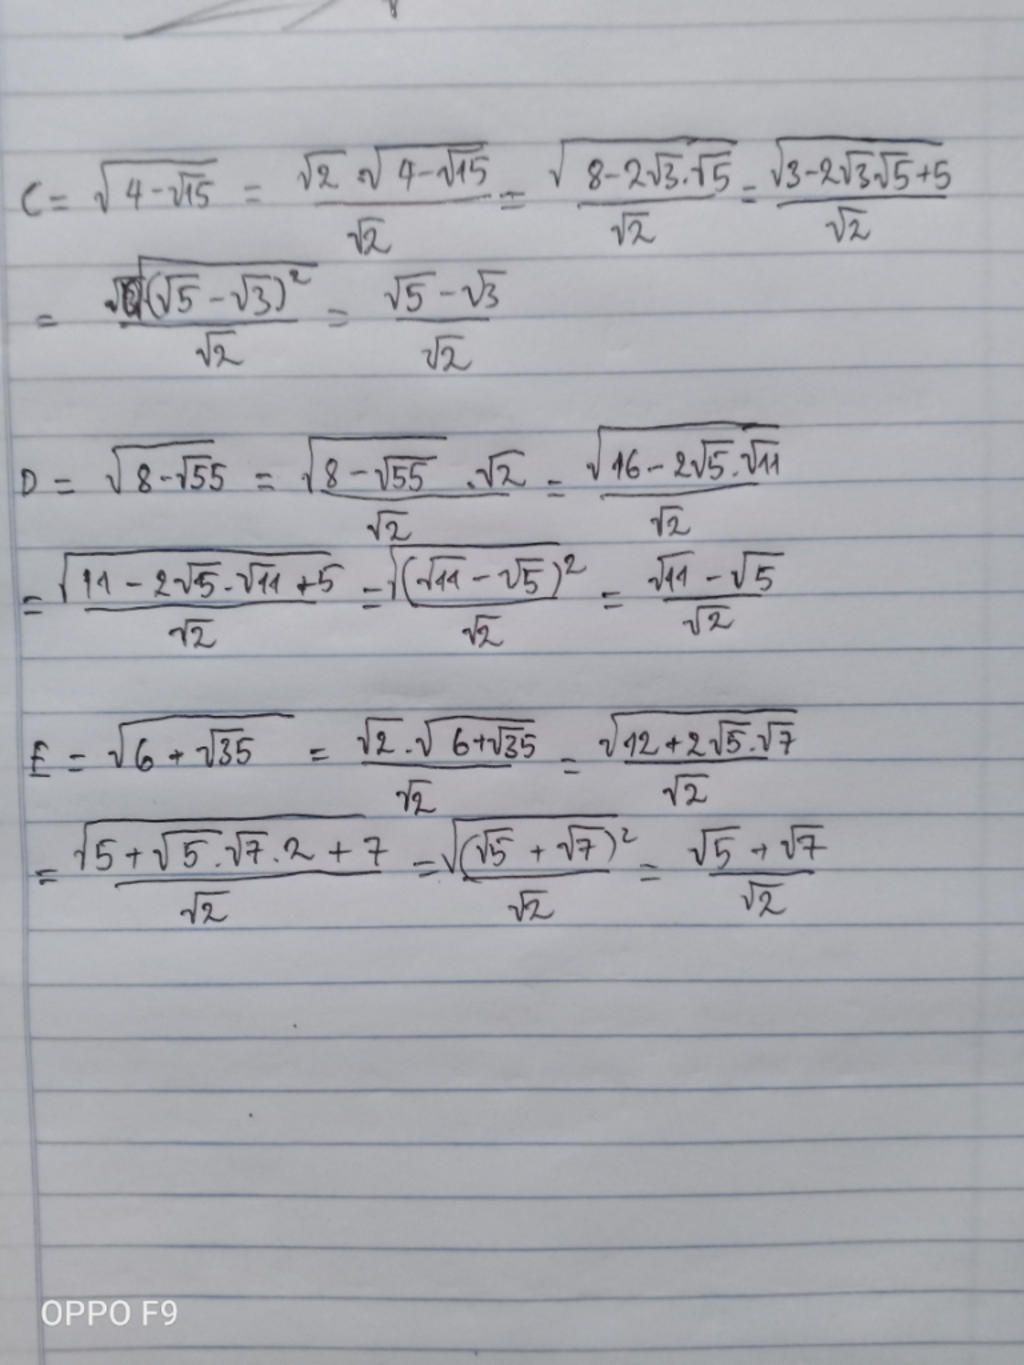 C = √(4-√15) = (√2 . √(4-√15))/√2 = √(8-2√3.√5)/√2 = √(3-2√3√5+5)/√2
= √((√5-√3)²)/√2 = (√5-√3)/√2
D = √(8-√55) = (√(8-√55) . √2)/√2 = √(16-2√5.√11)/√2
= √(11-2√5.√11+5)/√2 = √((√11-√5)²)/√2 = (√11-√5)/√2
E = √(6+√35) = (√2 . √(6+√35))/√2 = √(12+2√5.√7)/√2
= √(5+√5.√7.2+7)/√2 = √((√5+√7)²)/√2 = (√5+√7)/√2
OPPO F9